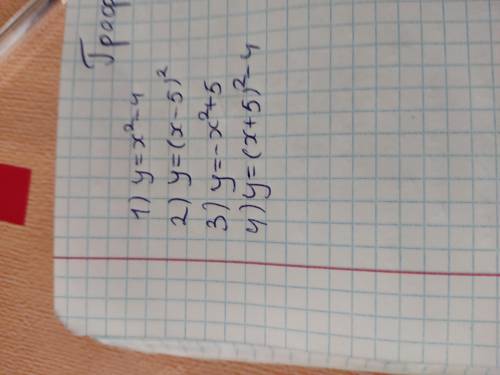 1) y=x²-4
2) y=(x-5)²
3) y=-x²+5
4) y=(x+5)²-4